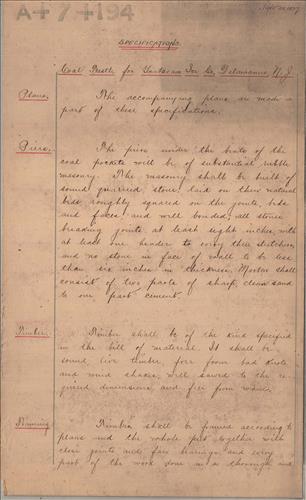 A+7+194
Sept
SPECIFICATIONS.
Coal Trestle for Co. Delawanna N. J.
Plans,
The accompanying plans are made a
part of these specifications.
Piers,
The piers under the bents of the
coal pockets will be of substantial rubble
masonry. The masonry shall be built of
sound quarried stone, laid on their natural
beds, roughly squared on the joints, beds
and faces and will bonded, all stones
breaking joints at least eight inches, with
at least one header to every three stretchers
and no stone in face of wall to be less
than six inches in thickness. Mortar shall
consist of two parts of sharp, clean sand
to one part cement.
Timber.
Timber shall be of the kind specified
in the bill of material. It shall be
sound, live timber, free from bad knots
and wind shakes, well sawed to the re-
quired dimensions, and free from wane.
Framing
Timber shall be framed according to
plans and the whole put together with
close joints and fair bearings and every
part of the work done in a thorough and